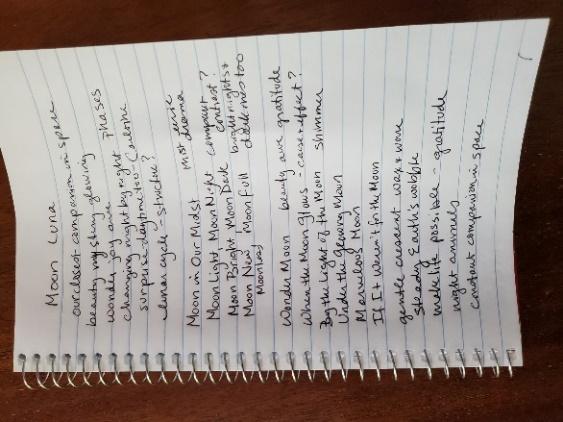 Moon Luna
our closest companion in space
beauty mystery glowing
wonder joy awe phases
changing night by night
surprise destruction
lunar cycle structure?
mist drama
Moon in Our Midst
Moon Light Moon Night compare contrast?
Moon Bright Moon Dark bright nights &
Moon New Moon Full dark ones too
Wonder Moon beauty awe gratitude
When the Moon glows - cause & effect?
By the Light of the Moon shimmer
Under the Glowing Moon
Marvelous Moon
If It Weren't for the Moon
gentle crescent wax & wane
steady Earth's wobble
make life possible - gratitude
night animals
constant companion in space